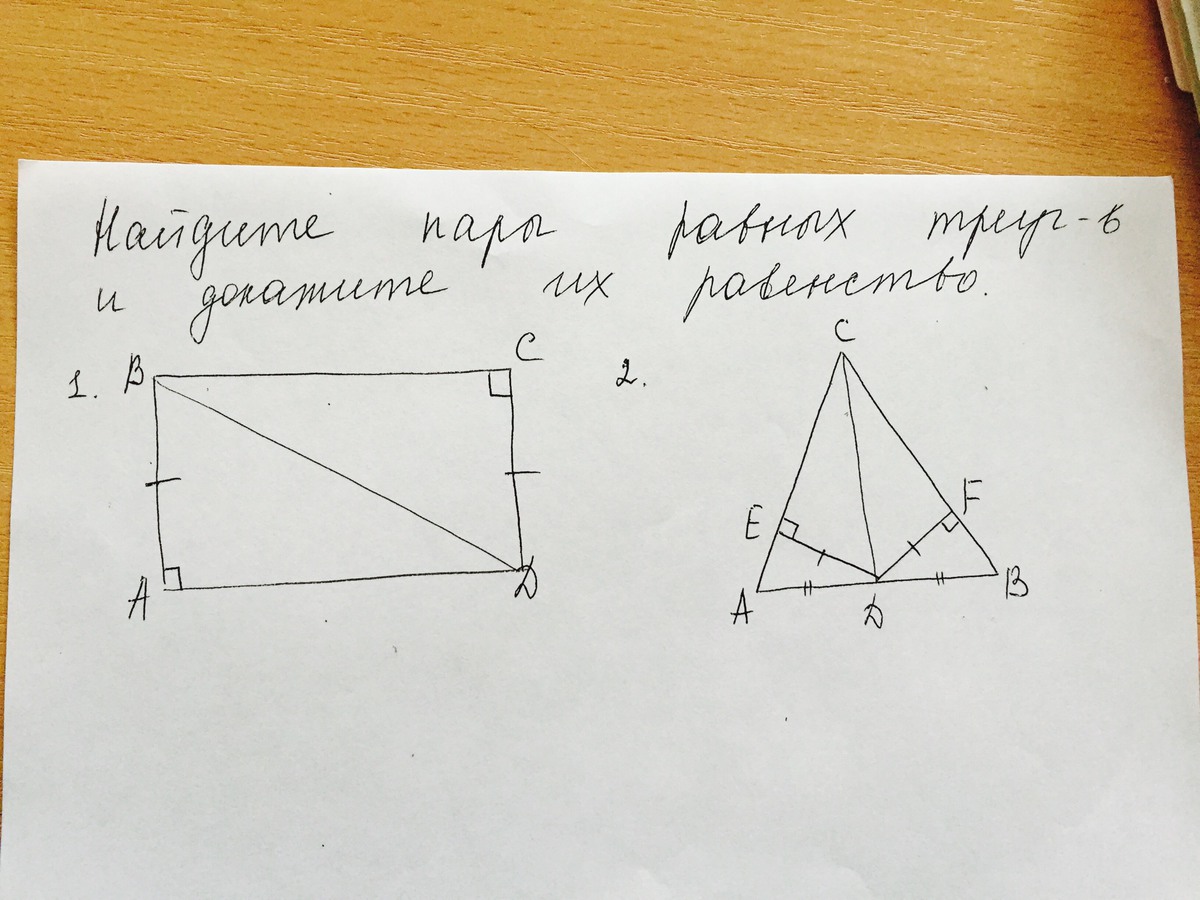 Найдите пары равных треуг-в
и докажите их равенство.
1. B C 2. C
E F
A D A D B